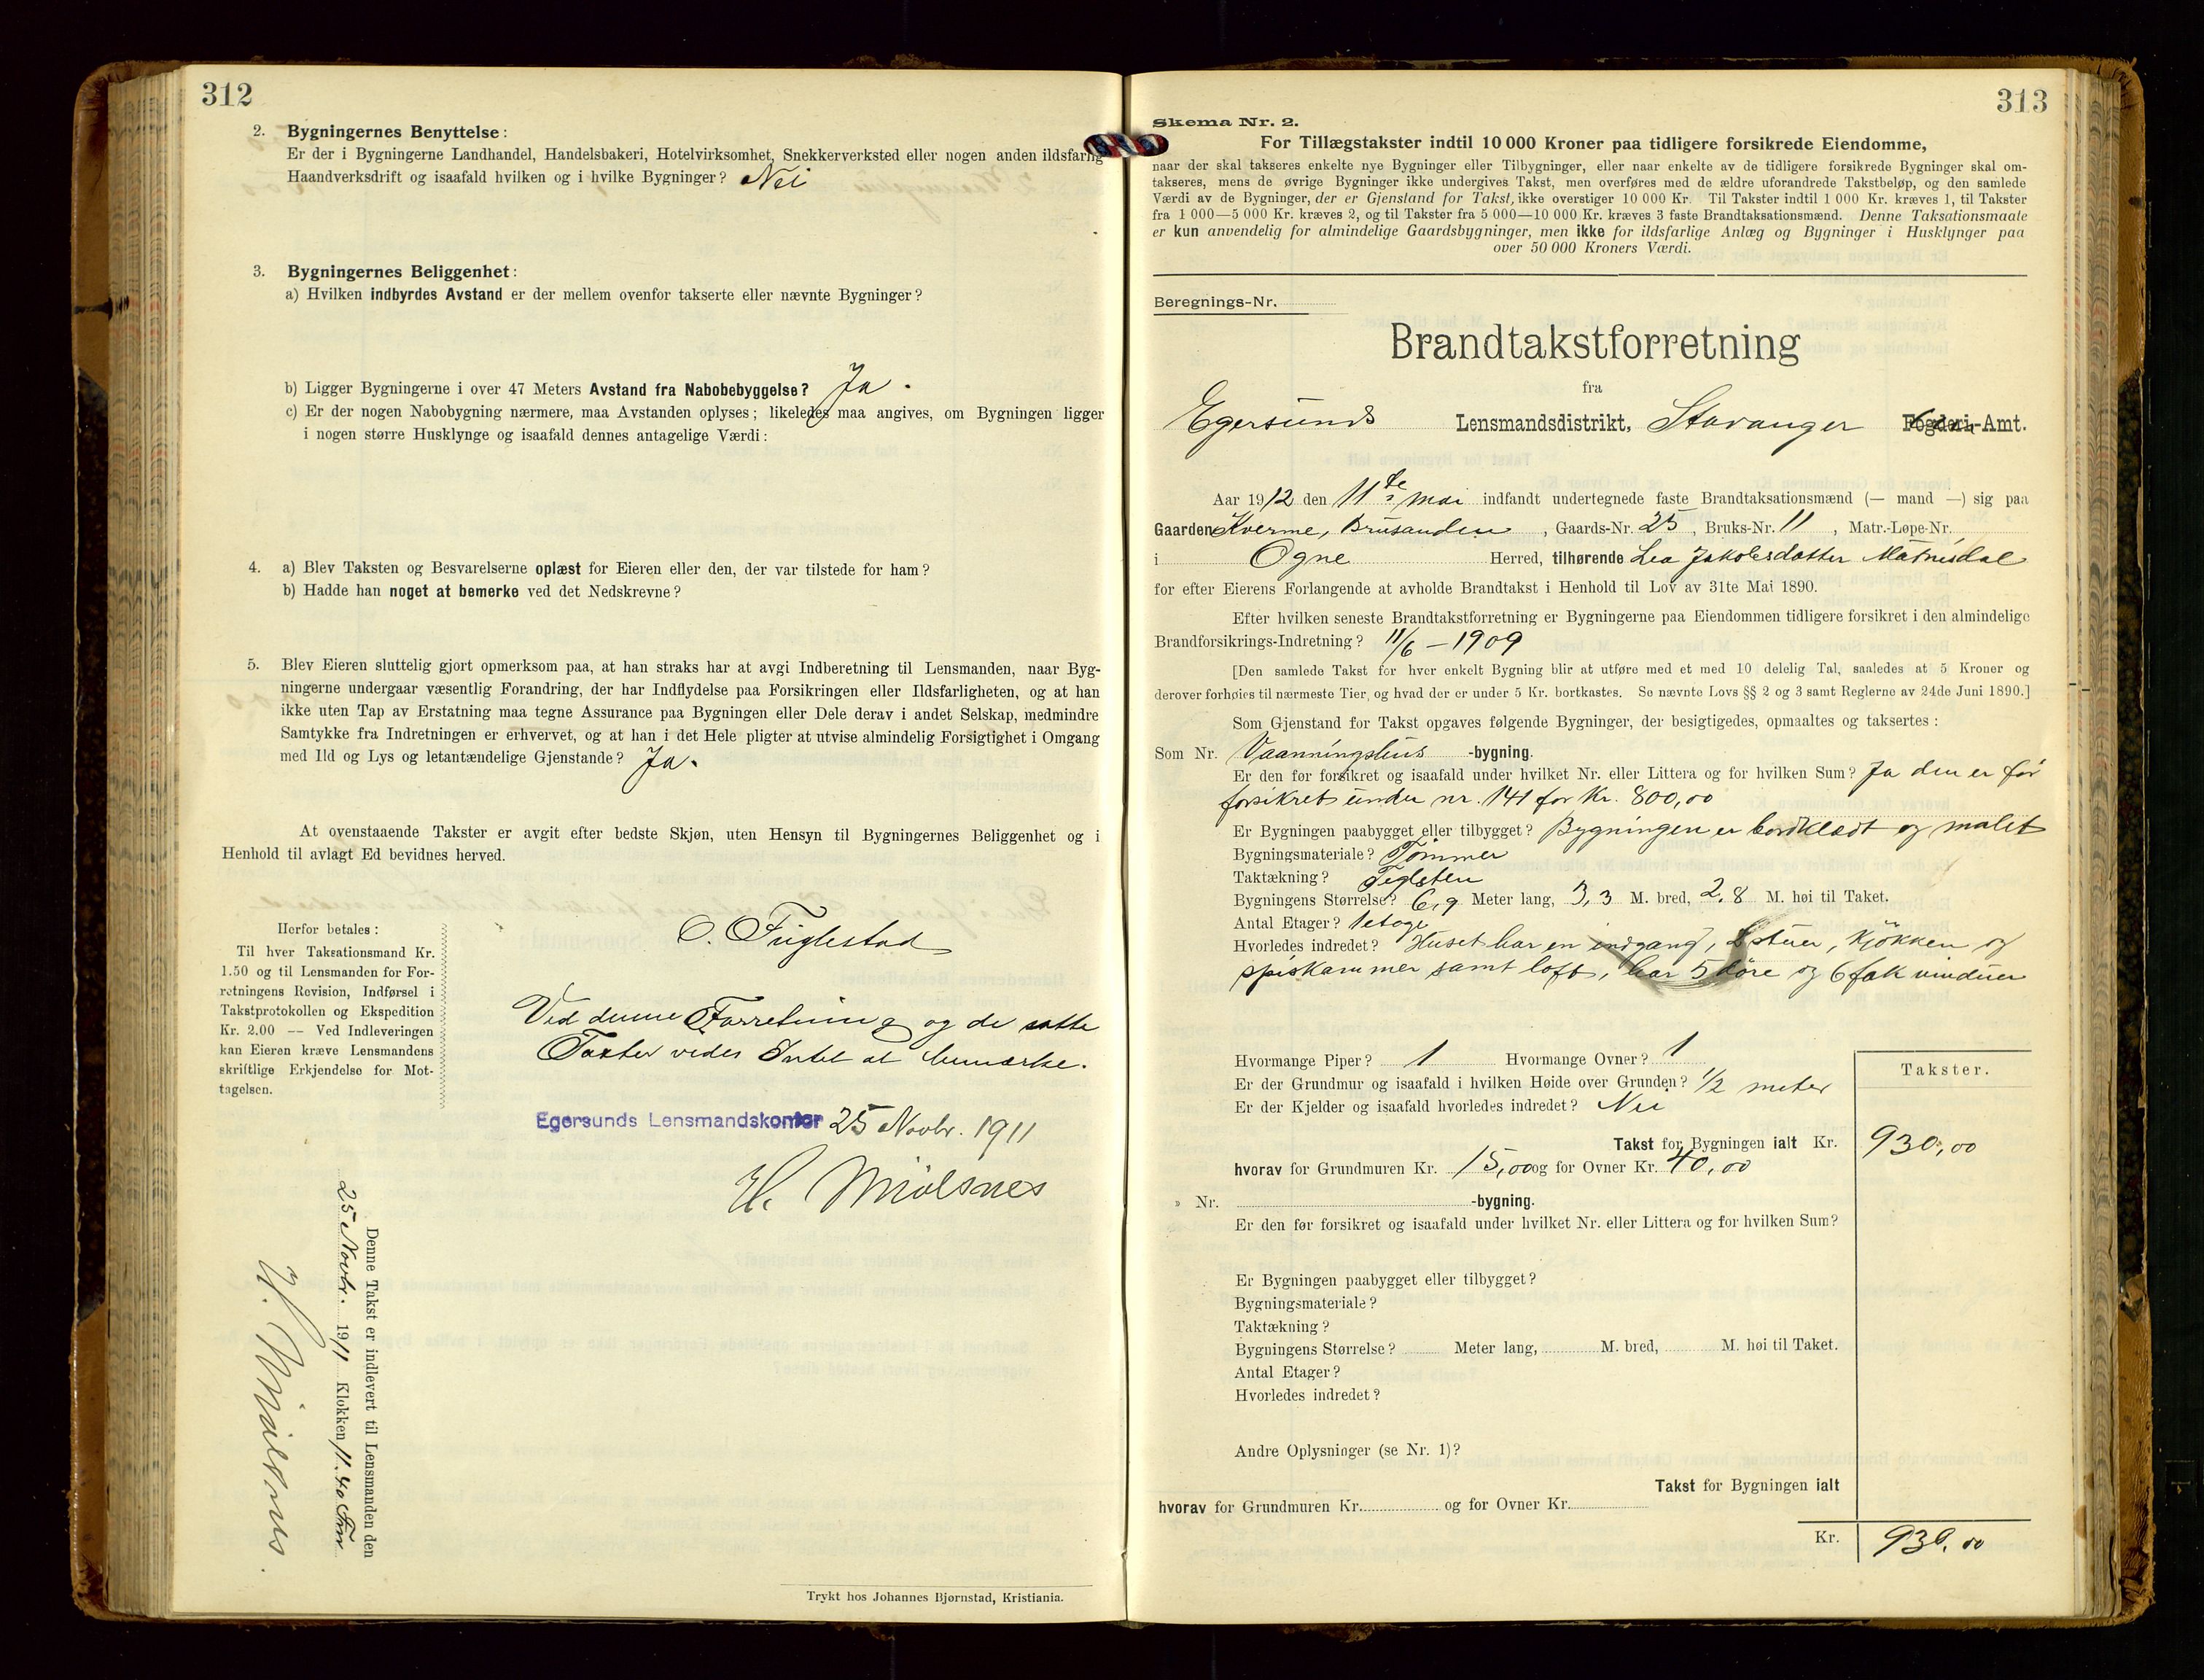 312
2. Bygningernes Benyttelse:
Er der i Bygningerne Landhandel, Handelsbakeri, Hotelvirksomhet, Snekkerverksted eller nogen anden ildsfarlig
Haandverksdrift og isaafald hvilken og i hvilke Bygninger? Nei
3. Bygningernes Beliggenhet:
a) Hvilken indbyrdes Avstand er der mellem ovenfor takserte eller nævnte Bygninger?
b) Ligger Bygningerne i over 47 Meters Avstand fra Nabobebyggelse? Ja.
c) Er der nogen Nabobygning nærmere, maa Avstanden oplyses; likeledes maa angives, om Bygningen ligger
i nogen større Husklynge og isaafald dennes antagelige Værdi:
4. a) Blev Taksten og Besvarelserne oplæst for Eieren eller den, der var tilstede for ham?
b) Hadde han noget at bemerke ved det Nedskrevne?
5. Blev Eieren sluttelig gjort opmerksom paa, at han straks har at avgi Indberetning til Lensmanden, naar Byg-
ningerne undergaar væsentlig Forandring, der har Indflydelse paa Forsikringen eller Ildsfarligheten, og at han
ikke uten Tap av Erstatning maa tegne Assurance paa Bygningen eller Dele derav i andet Selskap, medmindre
Samtykke fra Indretningen er erhvervet, og at han i det Hele pligter at utvise almindelig Forsigtighet i Omgang
med Ild og Lys og letantændelige Gjenstande? Ja.
At ovenstaaende Takster er avgit efter bedste Skjøn, uten Hensyn til Bygningernes Beliggenhet og i
Henhold til avlagt Ed bevidnes herved.
Herfor betales:
Til hver Taksationsmand Kr.
1.50 og til Lensmanden for For-
retningens Revision, Indførsel i
Takstprotokollen og Ekspedition
Kr. 2.00 — Ved Indleveringen
kan Eieren kræve Lensmandens
skriftlige Erkjendelse for Mot-
tagelsen.
O. Fuglestad
Ved denne Forretning og de satte
Taxter vides Intet at bemærke.
Egersunds Lensmandskontor 25 Novbr. 1911
H. Mjølsnes
Denne Takst er indlevert til Lensmanden den
25 Novbr. 1911 Klokken 11.40 Fm
H. Mjølsnes
Trykt hos Johannes Bjørnstad, Kristiania.
313
Skema Nr. 2.
For Tillægstakster indtil 10 000 Kroner paa tidligere forsikrede Eiendomme,
naar der skal takseres enkelte nye Bygninger eller Tilbygninger, eller naar enkelte av de tidligere forsikrede Bygninger skal om-
takseres, mens de øvrige Bygninger ikke undergives Takst, men overføres med de ældre uforandrede Takstbeløp, og den samlede
Værdi av de Bygninger, der er Gjenstand for Takst, ikke overstiger 10 000 Kr. Til Takster indtil 1 000 Kr. kræves 1, til Takster
fra 1 000—5 000 Kr. kræves 2, og til Takster fra 5 000—10 000 Kr. kræves 3 faste Brandtaksationsmænd. Denne Taksationsmaate
er kun anvendelig for almindelige Gaardsbygninger, men ikke for ildsfarlige Anlæg og Bygninger i Husklynger paa
over 50 000 Kroners Værdi.
Beregnings-Nr.
Brandtakstforretning
fra
Egersunds Lensmandsdistrikt, Stavanger Fogderi-Amt.
Aar 1912 den 11te mai indfandt undertegnede faste Brandtaksationsmænd (— mand —) sig paa
Gaarden Kverme, Brusanden, Gaards-Nr. 25, Bruks-Nr. 11, Matr.-Løpe-Nr.
i Ogne Herred, tilhørende Lea Jakobsdatter Matnisdal
for efter Eierens Forlangende at avholde Brandtakst i Henhold til Lov av 31te Mai 1890.
Efter hvilken seneste Brandtakstforretning er Bygningerne paa Eiendommen tidligere forsikret i den almindelige
Brandforsikrings-Indretning? 11/6 - 1909
[Den samlede Takst for hver enkelt Bygning blir at utføre med et med 10 delelig Tal, saaledes at 5 Kroner og
derover forhøies til nærmeste Tier, og hvad der er under 5 Kr. bortkastes. Se nævnte Lovs §§ 2 og 3 samt Reglerne av 24de Juni 1890.]
Som Gjenstand for Takst opgaves følgende Bygninger, der besigtigedes, opmaaltes og taksertes:
Som Nr. Vaanningshus -bygning.
Er den før forsikret og isaafald under hvilket Nr. eller Littera og for hvilken Sum? Ja den er før
forsikret under nr. 141 for Kr. 800,00
Er Bygningen paabygget eller tilbygget? Bygningen er bordklædt og malet
Bygningsmateriale? Tømmer
Taktækning? Teglsten
Bygningens Størrelse? 6,9 Meter lang, 3,3 M. bred, 2,8 M. høi til Taket.
Antal Etager? 1 etage
Hvorledes indredet? Huset har en indgang, 2 stuer, kjøkken og
spiskammer samt loft, har 5 døre og 6 fak vinduer
Hvormange Piper? 1 Hvormange Ovner? 1
Er der Grundmur og isaafald i hvilken Høide over Grunden? 1/2 meter
Er der Kjelder og isaafald hvorledes indredet? Nei
Takster.
Takst for Bygningen ialt Kr. 930,00
hvorav for Grundmuren Kr. 15,00 og for Ovner Kr. 40,00
» Nr. -bygning.
Er den før forsikret og isaafald under hvilket Nr. eller Littera og for hvilken Sum?
Er Bygningen paabygget eller tilbygget?
Bygningsmateriale?
Taktækning?
Bygningens Størrelse? Meter lang, M. bred, M. høi til Taket.
Antal Etager?
Hvorledes indredet?
Andre Oplysninger (se Nr. 1)?
Takst for Bygningen ialt
hvorav for Grundmuren Kr. og for Ovner Kr.
Kr. 930.00